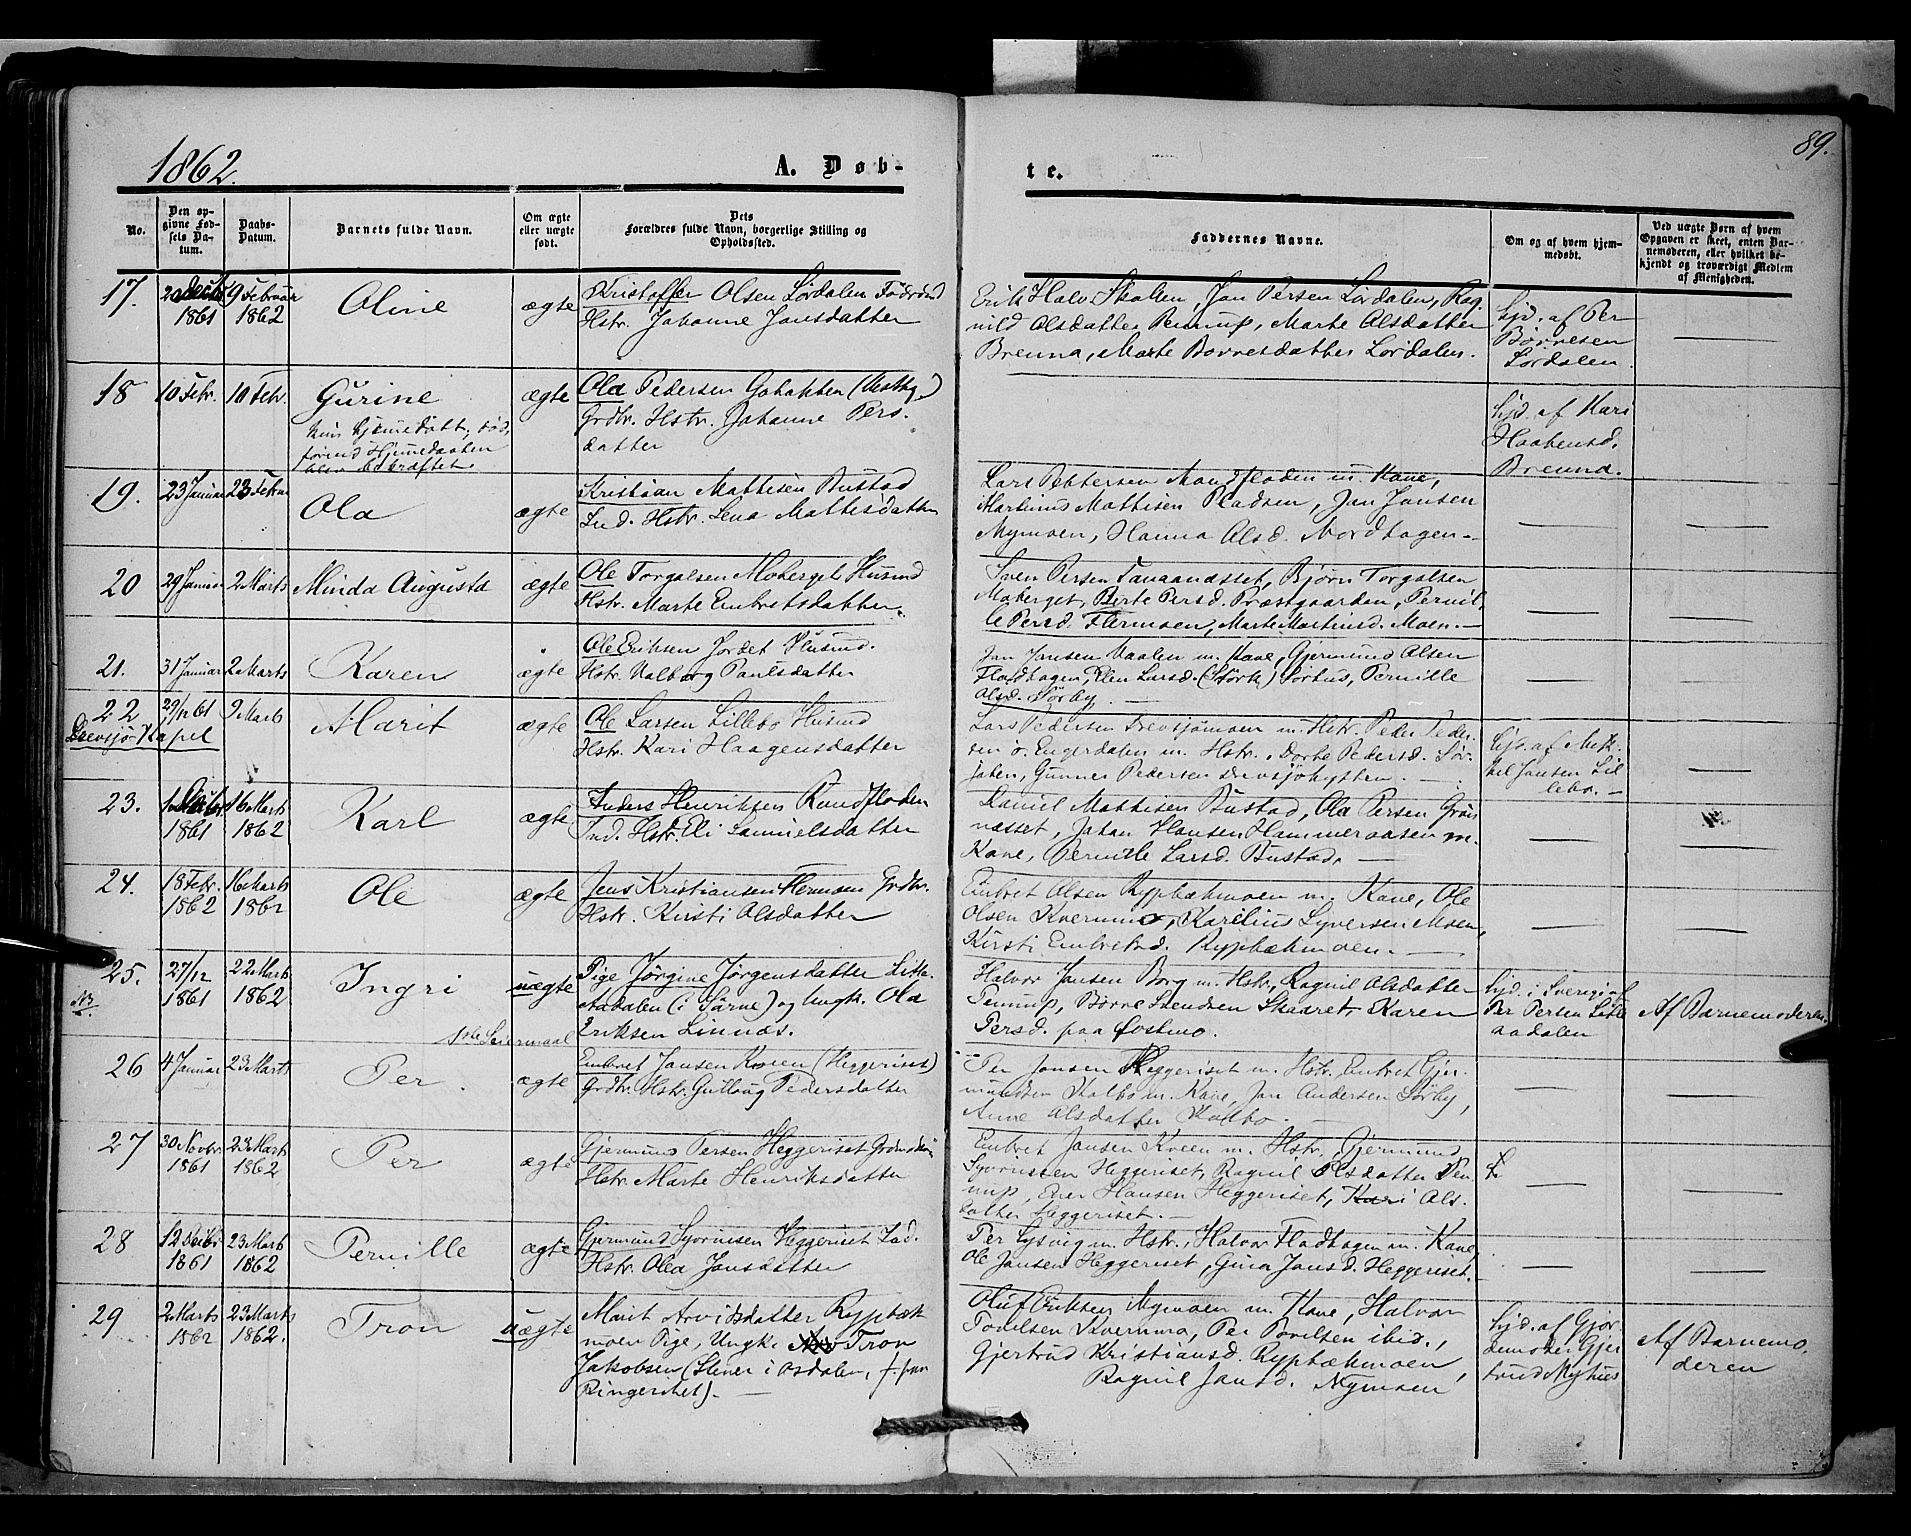 1862.
A. Døb-
te.
89.
No.
Den op-
givne Fød-
sels Da-
tum.
Daabs-
Datum.
Barnets fulde Navn.
Om ægte
eller uægte
født.
Dets
Forældres fulde Navn, borgerlige Stilling og
Opholdssted.
Faddernes Navne.
Om og af hvem hjem-
medøbt.
Ved uægte Børn af hvem
Opgaven er skeet, enten Bar-
nemoderen, eller hvilket be-
kjendt og troværdigt Medlem
af Menigheden.
17.
1861
9 Februar
1862
Oline
ægte
Kristoffer Olsen Lördalen
Hstr. Johanne Jansdatter
Erik Halv. Skolten, Jan Persen Lördalen, Rag
nild Olsdatter Penrup, Marte Olsdatter
Brenna, Marte Börresdatter Lördalen.
hjd. af Per
Börresen
Lördalen
18
10 Febr.
10 Febr.
Gurine
ægte
Ola Pedersen
Grdbr. Hstr. Johanne Pers
datter
hjd. af Kari
Haakensd.
Brenna.
19.
23 Januar
23 Febru
Ola
ægte
Kristian Mattisen Bustad
Ind. Hstr. Lena Mattisdatter
Lars Pettersen Mandfloden m. Kone,
Martinus Mattisen Pladsen, Jan Jansen
Nymoen, Hanna Olsd. Nordhagen.
20
29 Januar
2 Marts
Minda Augusta
ægte
Ole Torgalsen Moberget Husmd
Hstr. Marte Embretsdatter.
Sven Persen Tanaanæsset, Björn Torgalsen
Moberget, Berte Persd. Præstgaarden, Pernil
le Persd. Flermoen, Marte Martinsd. Moen.
21.
31 Januar
2 Marts
Karen
ægte
Ole Eriksen Jordet Husmd.
Hstr. Valborg Paulsdatter
Jan Jansen Vaalen m. Kone, Gjermund Olsen
Flodhagen, Ellen Larsd. Sorhus, Pernille
Olsd. Sörby.
22
Drevsjö Kapel
9 Marts
Marit
ægte
Ole Larsen Lillebo Husmd
Hstr. Kari Haagensdatter
Lars Pedersen Drevsjömoen m. Hstr. Peder Peder
sen ö. Engerdalen m. Hstr., Dorte Pedersd. Sör
Gunner Pedersen Drevsjöhytten.
hjd. af Mik
kel Jansen Lil
lebo.
23.
1861
16 Marts
1862
Karl
ægte
Anders Henriksen Rundfloden
Ind. Hstr. Eli Samuelsdatter
Daniel Mattisen Bustad, Ola Persen Grön
næsset, Johan Hansen Hammeraasen m.
Kone, Pernille Larsd. Bustad.
24.
18 Febr.
1862
16 Marts
1862
Ole
ægte
Jens Kristiansen Flermoen Grdbr.
Hstr. Kirsti Olsdatter
Embret Olsen Rypbækmoen m. Kone, Ole
Olsen Kvernmo, Karelius Syversen Moen,
Kirsti Embretsd. Rypbækmoen.
25.
NB.
27/12
1861
22 Marts
1862
Ingri
uægte
Pige Jörgine Jörgensdatter Litle
Aadalen (i Särne) og Ungk. Ola
Eriksen Linnæs.
1ste Leiermaal
Halvor Jansen Borg m. Hstr, Ragnil Olsdatter
Penrup, Börre Svendsen Skaaret, Karen
Persd. paa Östmo.
hjd. i Sverige af
Per Persen Litle
aadalen
Af Barnemoderen.
26
4 Januar
23 Marts
Per
ægte
Embret Jansen Kveen (Heggeriset)
Grdbr. Hstr. Gullaug Pedersdatter
Per Jansen Heggeriset m. Hstr. Embret Gjer
mundsen Kolbo m. Kone, Jan Andersen Sörby,
Anne Olsdatter Kolbo
27
30 Novbr.
1861
23 Marts
1862
Per
ægte
Gjermund Persen Heggeriset
Hstr. Marte Henriksdatter
Embret Jansen Kveen m. Hstr. Gjermund
Syvrinsen Heggeriset, Ragnil Olsdatter Pen
rup, Ener Hansen Heggeriset, Kari Ols
datter Heggeriset.
28
12 Decbr
1861
23 Marts
1862
Pernille
ægte
Gjermund Syvrinsen Heggeriset Ind.
Hstr. Olea Jansdatter
Per Lysvig m. Hstr., Halvor Flodhagen m. Kone,
Ole Jansen Heggeriset, Gina Jansd. Heggeriset.
29
2 Marts
1862
23 Marts
1862.
Tron
uægte
Marit Arvidsdatter Rypbæk
moen Pige, Ungk. Tron
Jakobsen (Stener i Osdalen, f. paa
Ringeriket).
Oluf Eriksen Nymoen m. Kone, Halvor
Povelsen Kvernmo, Per Povelsen ibid.,
Gjertrud Kristiansd. Rypbækmoen,
Ragnil Jansd. Nymoen
hjd. af Gjor
demoder Gjer
trud Myhus
Af Barnemo,
deren